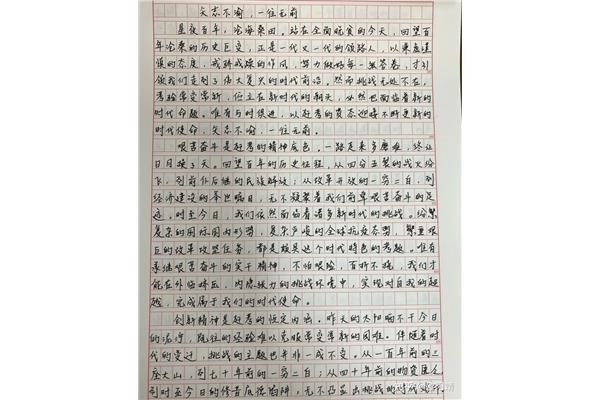 矢志不喻,一往无前
星夜百年,沧海桑田。站在全面脱贫的今天,回望百
年沧桑的历史巨变,正是一代又一代的领路人,以乘虚道
慎的态度,戒骄戒躁的作风,努力做好每一张答卷,才引
领我们走到了伟大复兴的时代前沿。然而挑战无处不在,
考验常变常新,伫立在新时代的潮头,必然也面临着新的
时代命题。唯有与时俱进,以赶考的姿态迎接不断更新的
时代使命,矢志不喻,一往无前。
艰苦奋斗是赶考的精神底色,一路走来多磨难,终让
日月换了天。回望百年的历史征程,从四分五裂的战火纷
飞,到前仆后继的民族解放;从改革开放的一穷二白,到
经济建设的举世瞩目,无不凝聚着我们前辈艰苦奋斗的足
迹,时至今日,我们依然面临着诸多新时代的挑战。纷繁
复杂的国际国内形势,复杂严峻的全球抗疫态势,繁重艰
巨的改革攻坚任务,都是极具这个时代特色的考题。唯有
承继艰苦奋斗的实干精神,不怕艰险,百折不挠,我们才
能在外临挤压,内添极力的挑战环境中,实现对自我的超
越,完成属于我们的时代使命。
创新精神是赶考的恒定内涵。昨天的太阳晒不干今日
的衣服,既往的经验难以克服常变常新的困难。伴随着时
代的变迁,挑战的主题也并非一成不变。从一百年前的三
座大山,到七十年前的一穷二白;从四十年前的物资匮乏
到时至今日的修昔底德陷阱,无不凸显出挑战的时代烙印